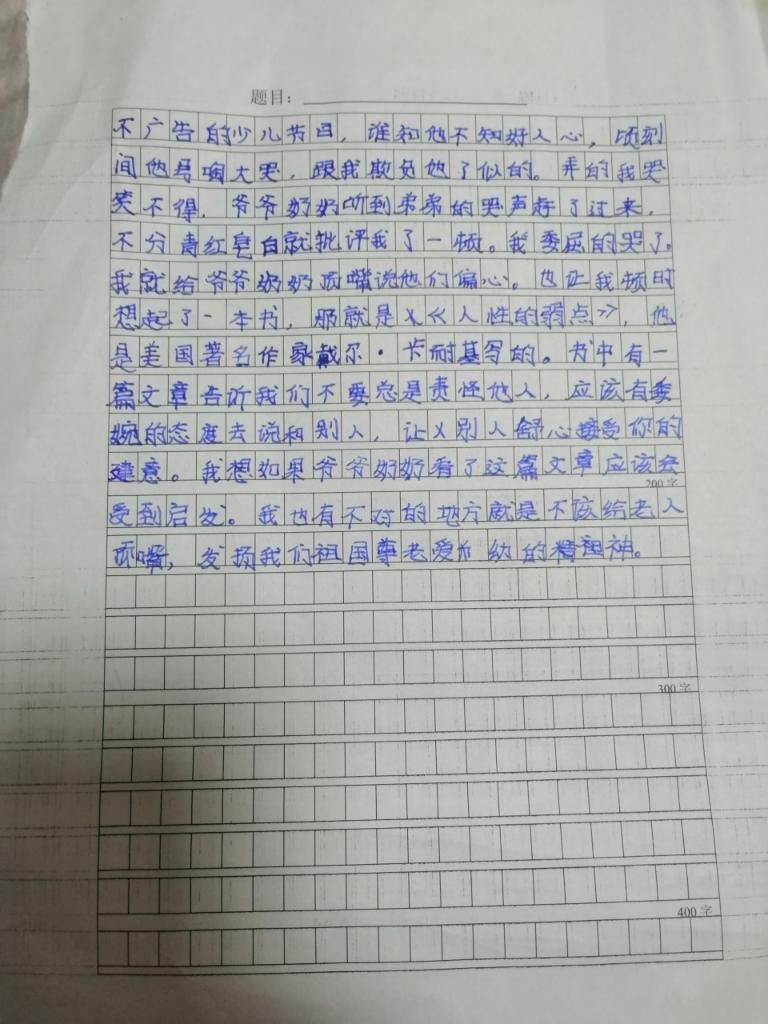 题目：
不广告的少儿节目，谁知他不知好人心，顷刻
间他号啕大哭，跟我欺负他了似的。弄的我哭
笑不得，爷爷奶奶听到弟弟的哭声存了过来，
不分青红皂白就批评我了一顿。我委屈的哭了。
我就给爷爷奶奶顶嘴说他们偏心。也让我顿时
想起了一本书，那就是《人性的弱点》，他
是美国著名作家戴尔·卡耐基写的。书中有一
篇文章告诉我们不要总是责怪他人，应该有委
婉的态度去说和别人，让别人舒心接受你的
建意。我想如果爷爷奶奶看了这篇文章应该会
200字
受到启发。我也有不对的地方就是不该给老人
顶嘴，发扬我们祖国尊老爱幼的精神。
300字
400字